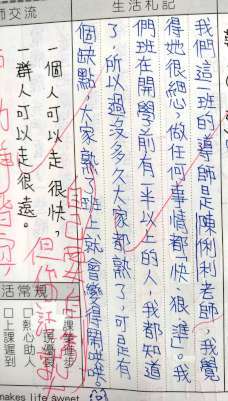 生活札記
我們這一班的導師是陳俐利老師,我覺
得她很細心,做任何事情都「快、狠、準」。我
們班在開學前有一半以上的人,我都知道
了,所以過沒多久大家都熟了,可是有
個缺點,大家熟了班上就會變得鬧哄哄。
師交流
一個人可以走很快,
一群人可以走很遠。
自己要
但你
活常規
課業進步
表現優良
□熱心助人
□上課遲到
makes life sweet